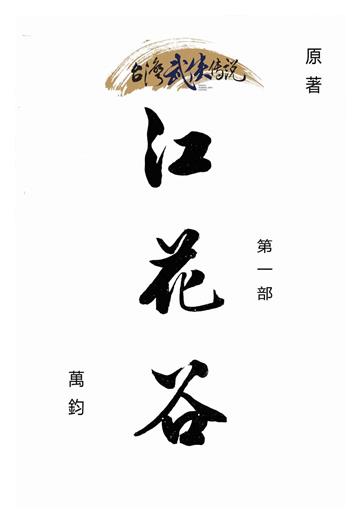 台灣武俠傳說
原著
江花谷
第一部
萬鈞